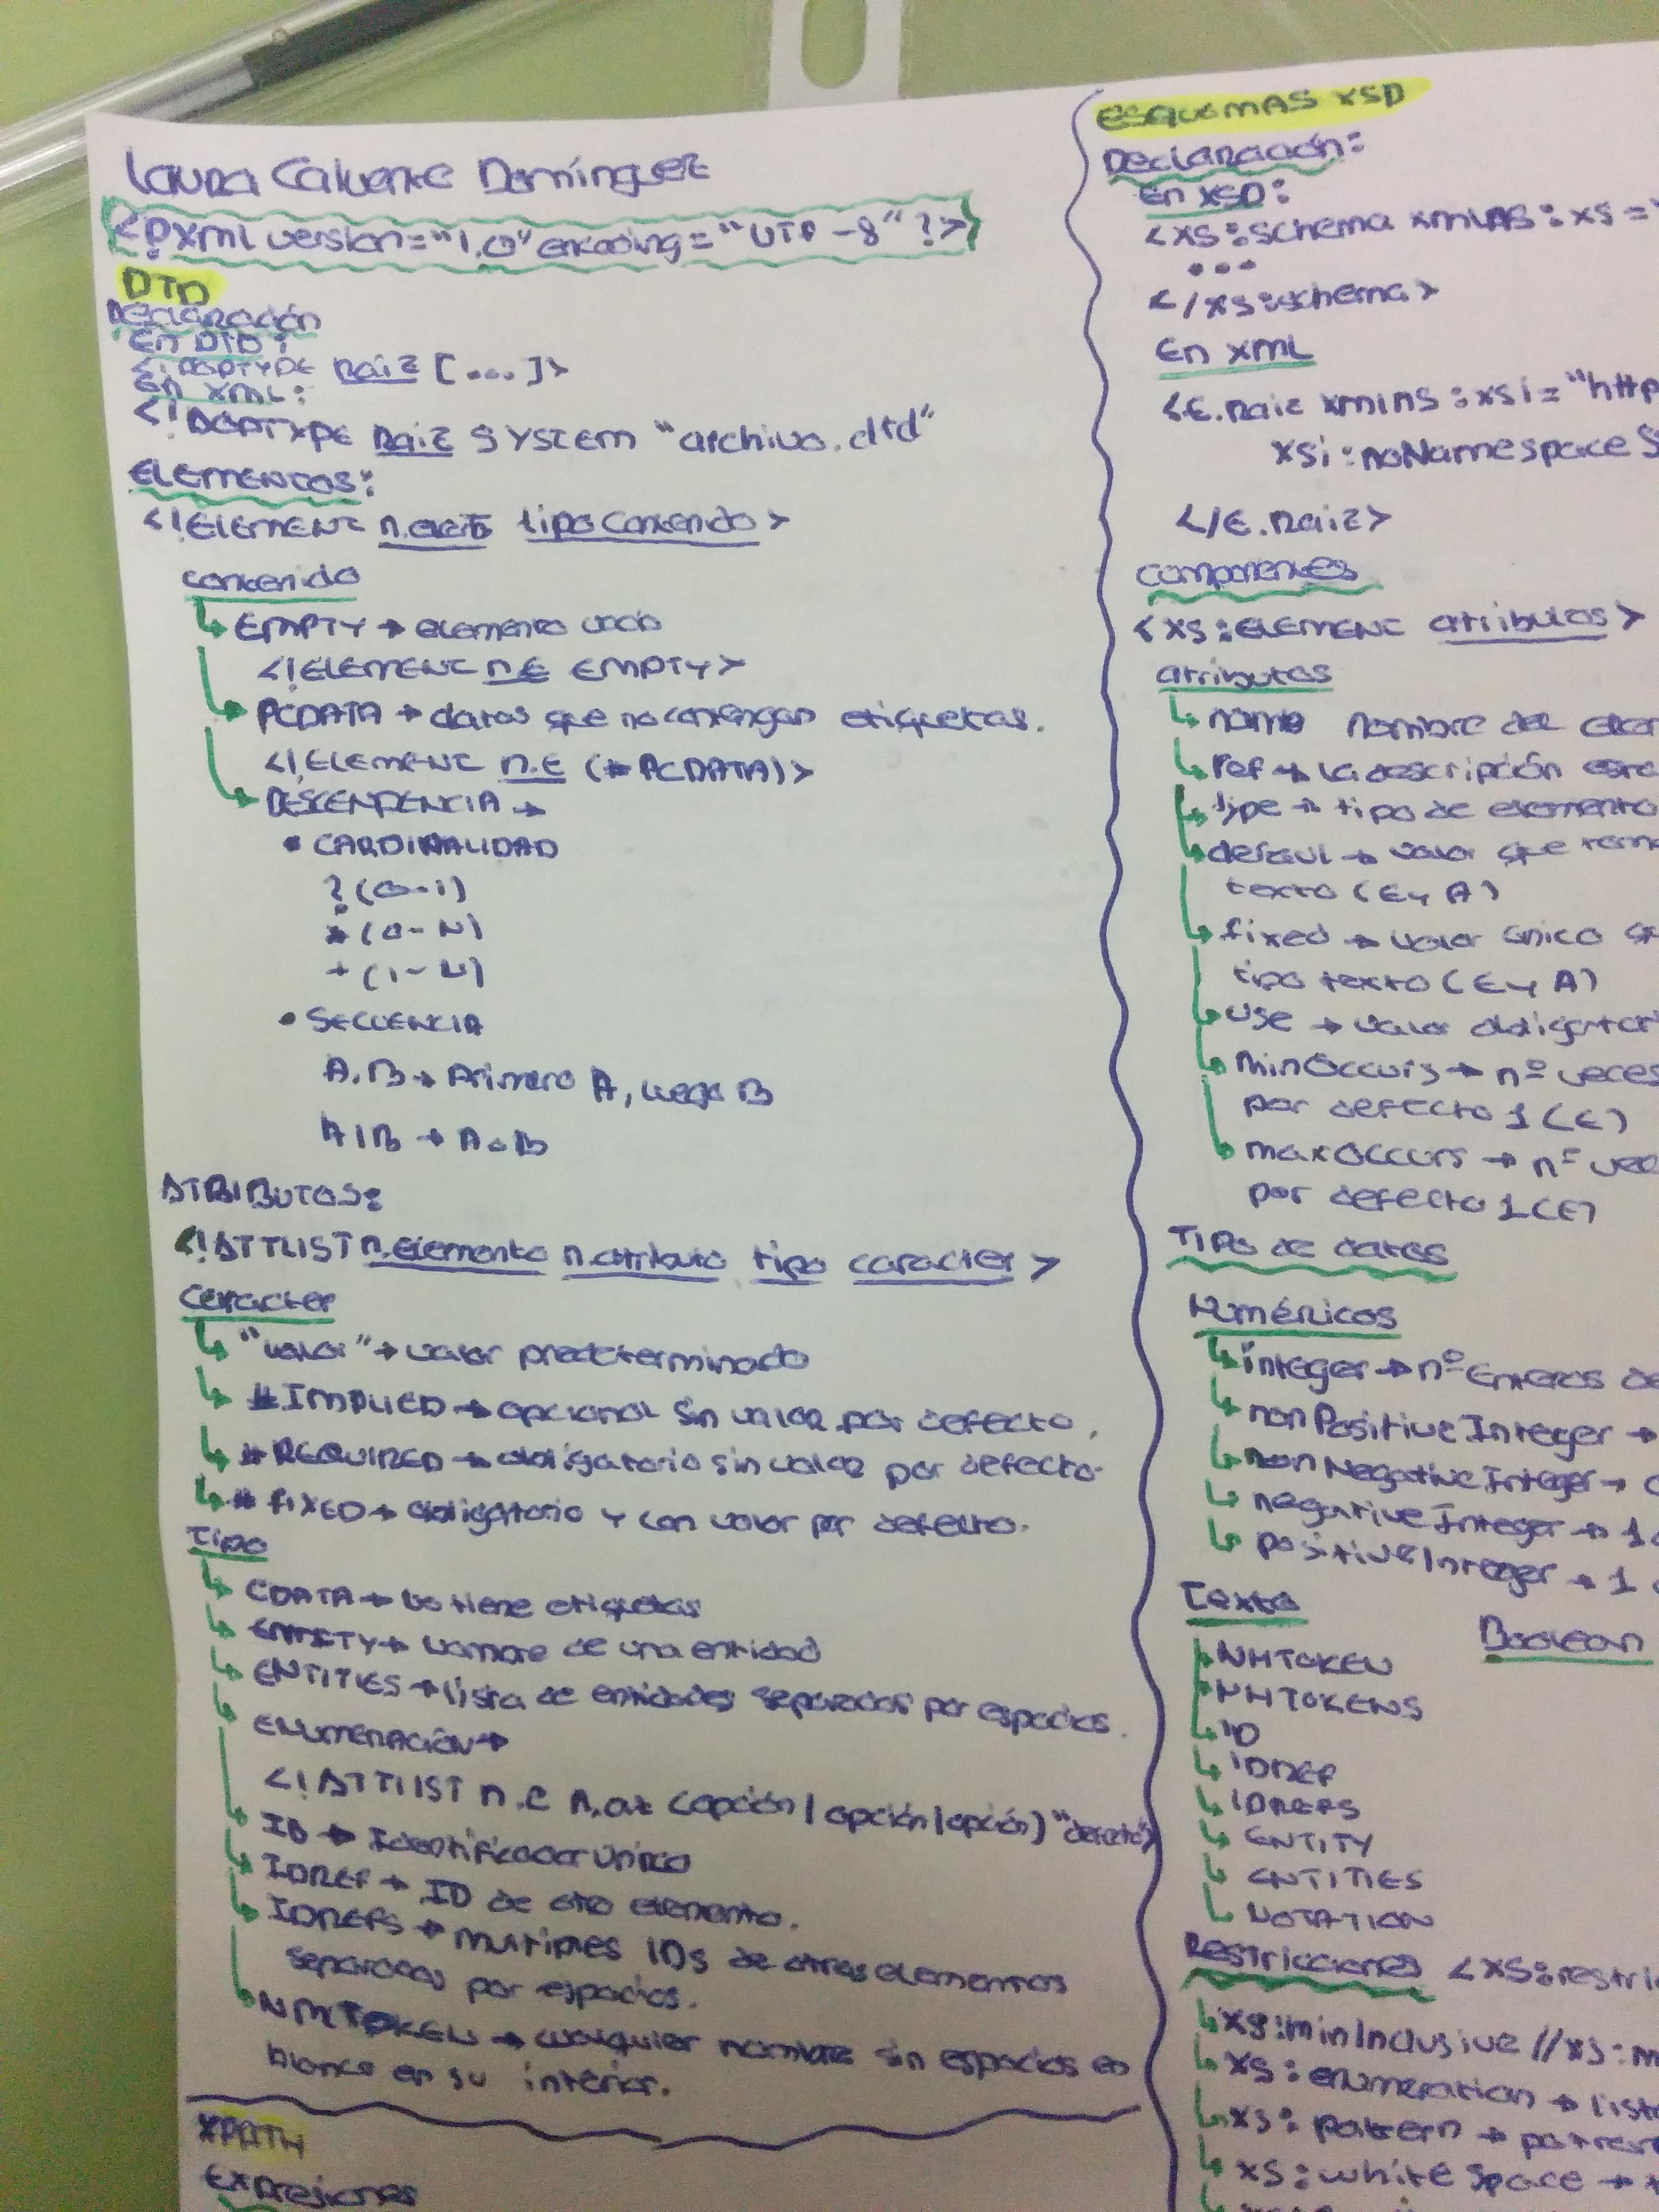 Laura Calvente Domínguez
<?xml version="1.0" encoding="UTF-8"?>
DTD
Declaración
En DTD:
<!DOCTYPE raiz [...]>
En XML:
<!DOCTYPE raiz SYSTEM "archivo.dtd"
ELEMENTOS:
<!ELEMENT tipoContenido>
contenido
EMPTY → elemento vacío
<!ELEMENT n.E EMPTY>
PCDATA → datos que no contengan etiquetas.
<!ELEMENT n.E (#PCDATA)>
DESCENDENCIA →
• CARDINALIDAD
? (0-1)
* (0-N)
+ (1-N)
• SECUENCIA
A,B → Primero A, luego B
A|B → A o B
ATRIBUTOS:
<!ATTLIST n.elemento n.atributo tipo caracter>
Caracter
"valor" → valor predeterminado
#IMPLIED → opcional sin valor por defecto.
#REQUIRED → obligatorio sin valor por defecto.
#FIXED → obligatorio y con valor por defecto.
Tipo
CDATA → No tiene etiquetas
ENTITY → Nombre de una entidad
ENTITIES → lista de entidades separadas por espacios.
ENUMERACIÓN →
<!ATTLIST n.E n.at (opción|opción|opción) "defecto">
ID → Identificador único
IDREF → ID de otro elemento.
IDREFS → multiples IDs de otros elementos
separados por espacios.
NMTOKEN → cualquier nombre sin espacios en
blanco en su interior.
XPATH
Expresiones
ESQUEMAS XSD
Declaración:
En XSD:
<xs:schema xmlns:xs="
...
</xs:schema>
En XML
<E.raiz xmlns:xsi="http
xsi:noNamespaceS
</E.raiz>
componentes
<xs:ELEMENT atributos>
atributos
name nombre del elem
ref → la descripción
type → tipo de elemento
defaul → valor que
texto (E y A)
fixed → valor único
tipo texto (E y A)
use → valor obligator
minOccurs → nº veces
por defecto 1 (E)
maxOccurs → nº vec
por defecto 1 (E)
Tipo de datos
Numéricos
integer → nº Enteros de
nonPositiveInteger →
nonNegativeInteger →
negativeInteger → 1
positiveInteger → 1
Texto
Boolean
NMTOKEN
NMTOKENS
ID
IDREF
IDREFS
ENTITY
ENTITIES
NOTATION
Restricciones <xs:restri
xs:minInclusive // xs:m
xs:enumeration → list
xs:pattern →
xs:whiteSpace →